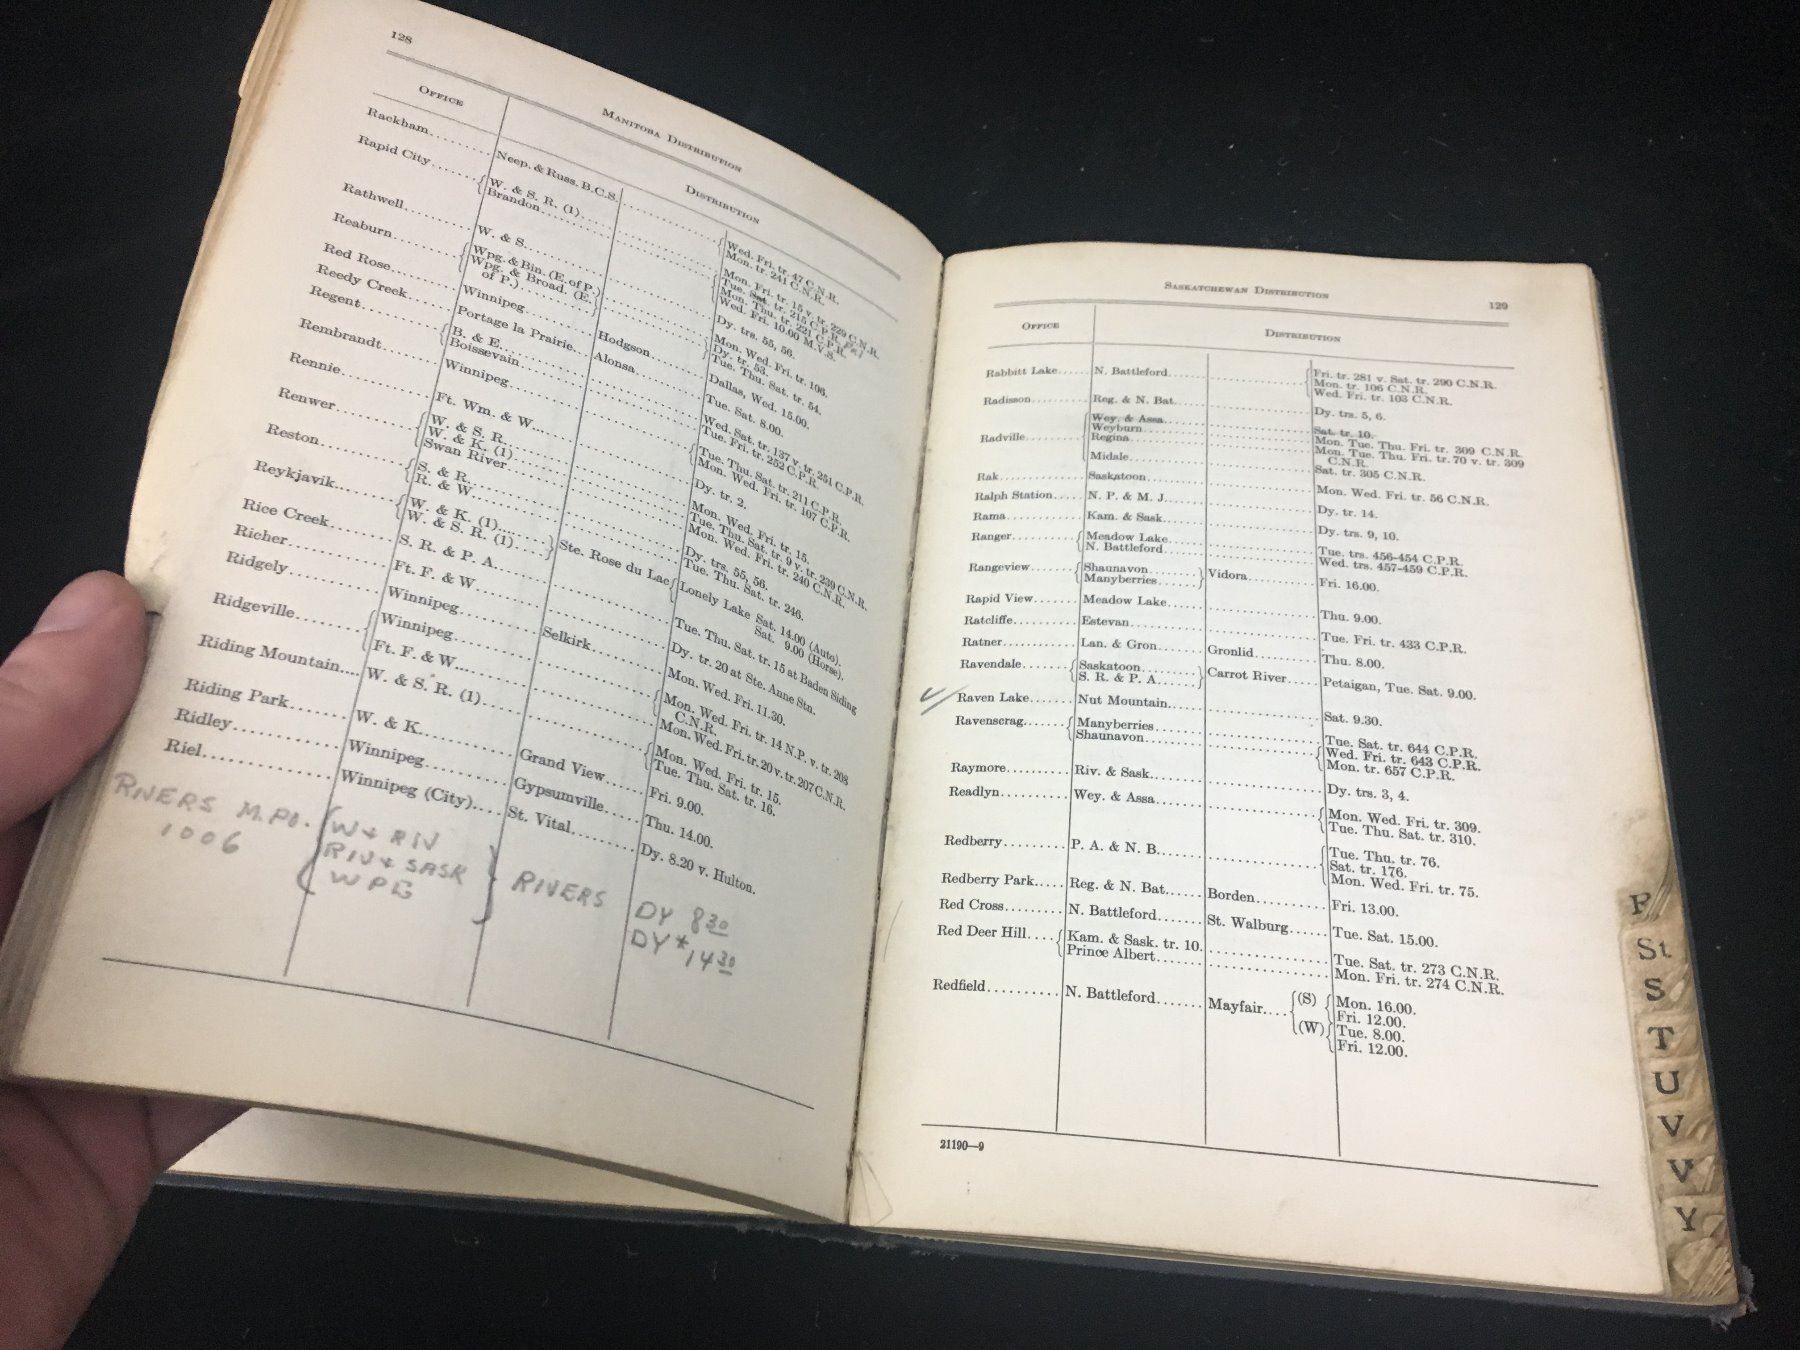 128
MANITOBA DISTRIBUTION
OFFICE
DISTRIBUTION
Rackham........ Neep. & Russ. B.C.S. { Wed. Fri. tr. 47 C.N.R.
Mon. tr. 241 C.N.R.
Rapid City...... { W. & S. R. (1)..... { Mon. Fri. tr. 15 v. tr. 229 C.N.R.
Brandon..... Tue. Sat. tr. 215 C.P.R.
Mon. Thu. tr. 221 C.P.R.
Wed. Fri. 10.00 M.V.S.
Rathwell........ W. & S...... Dy. trs. 55, 56.
Reaburn........ { Wpg. & Bin. (E. of P.) Mon. Wed. Fri. tr. 106.
Wpg. & Broad. (E. of P.)..... } { Dy. tr. 53.
Tue. Thu. Sat. tr. 54.
Red Rose........ Winnipeg..... Hodgson..... Dallas, Wed. 15.00.
Reedy Creek..... Portage la Prairie... Alonsa..... Tue. Sat. 8.00.
Regent......... { B. & E..... Wed. Sat. tr. 137 v. tr. 251 C.P.R.
Boissevain..... Tue. Fri. tr. 252 C.P.R.
Rembrandt...... Winnipeg..... { Tue. Thu. Sat. tr. 211 C.P.R.
Mon. Wed. Fri. tr. 107 C.P.R.
Rennie......... Ft. Wm. & W..... Dy. tr. 2.
Renwer......... { W. & S. R..... Mon. Wed. Fri. tr. 15.
W. & K. (1)..... Tue. Thu. Sat. tr. 9 v. tr. 239 C.N.R.
Swan River..... Mon. Wed. Fri. tr. 240 C.N.R.
Reston......... { S. & R..... Dy. trs. 55, 56.
R. & W..... Tue. Thu. Sat. tr. 246.
Reykjavik...... { W. & K. (1)..... } Ste. Rose du Lac { Lonely Lake Sat. 14.00 (Auto).
W. & S. R. (1)..... Sat. 9.00 (Horse).
Rice Creek...... S. R. & P. A..... Tue. Thu. Sat. tr. 15 at Baden Siding
Richer......... Ft. F. & W..... Dy. tr. 20 at Ste. Anne Stn.
Ridgely........ Winnipeg..... Selkirk..... Mon. Wed. Fri. 11.30.
Ridgeville...... { Winnipeg..... { Mon. Wed. Fri. tr. 14 N.P. v. tr. 208 C.N.R.
Ft. F. & W..... Mon. Wed. Fri. tr. 20 v. tr. 207 C.N.R.
Riding Mountain.... W. & S. R. (1)..... { Mon. Wed. Fri. tr. 15.
Tue. Thu. Sat. tr. 16.
Riding Park..... W. & K..... Grand View..... Fri. 9.00.
Ridley......... Winnipeg..... Gypsumville..... Thu. 14.00.
Riel........... Winnipeg (City).... St. Vital..... Dy. 8.20 v. Hulton.
RIVERS M.PO. { W & RIV } RIVERS DY 8 30
1006 RIV & SASK DY * 14 30
WPG
SASKATCHEWAN DISTRIBUTION
129
OFFICE
DISTRIBUTION
Rabbitt Lake..... N. Battleford..... { Fri. tr. 281 v. Sat. tr. 290 C.N.R.
Mon. tr. 106 C.N.R.
Wed. Fri. tr. 103 C.N.R.
Radisson....... Reg. & N. Bat..... Dy. trs. 5, 6.
Radville....... { Wey. & Assa..... Sat. tr. 10.
Weyburn..... Mon. Tue. Thu. Fri. tr. 309 C.N.R.
Regina..... Mon. Tue. Thu. Fri. tr. 70 v. tr. 309 C.N.R.
Midale..... Sat. tr. 305 C.N.R.
Rak........... Saskatoon..... Mon. Wed. Fri. tr. 56 C.N.R.
Ralph Station..... N. P. & M. J..... Dy. tr. 14.
Rama.......... Kam. & Sask..... Dy. trs. 9, 10.
Ranger......... { Meadow Lake..... Tue. trs. 456-454 C.P.R.
N. Battleford..... Wed. trs. 457-459 C.P.R.
Rangeview...... { Shaunavon..... } Vidora..... Fri. 16.00.
Manyberries.....
Rapid View..... Meadow Lake..... Thu. 9.00.
Ratcliffe....... Estevan..... Tue. Fri. tr. 433 C.P.R.
Ratner......... Lan. & Gron..... Gronlid..... Thu. 8.00.
Ravendale...... { Saskatoon..... } Carrot River..... Petaigan, Tue. Sat. 9.00.
S. R. & P. A.....
Raven Lake..... Nut Mountain..... Sat. 9.30.
Ravenscrag..... { Manyberries..... Tue. Sat. tr. 644 C.P.R.
Shaunavon..... { Wed. Fri. tr. 643 C.P.R.
Mon. tr. 657 C.P.R.
Raymore....... Riv. & Sask..... Dy. trs. 3, 4.
Readlyn........ Wey. & Assa..... { Mon. Wed. Fri. tr. 309.
Tue. Thu. Sat. tr. 310.
Redberry....... P. A. & N. B..... { Tue. Thu. tr. 76.
Sat. tr. 176.
Mon. Wed. Fri. tr. 75.
Redberry Park..... Reg. & N. Bat..... Borden..... Fri. 13.00.
Red Cross...... N. Battleford..... St. Walburg..... Tue. Sat. 15.00.
Red Deer Hill.... { Kam. & Sask. tr. 10. Tue. Sat. tr. 273 C.N.R.
Prince Albert..... Mon. Fri. tr. 274 C.N.R.
Redfield....... N. Battleford..... Mayfair.... { (S) { Mon. 16.00.
Fri. 12.00.
(W) { Tue. 8.00.
Fri. 12.00.
21190—9
St
S
T
U
V
V
Y